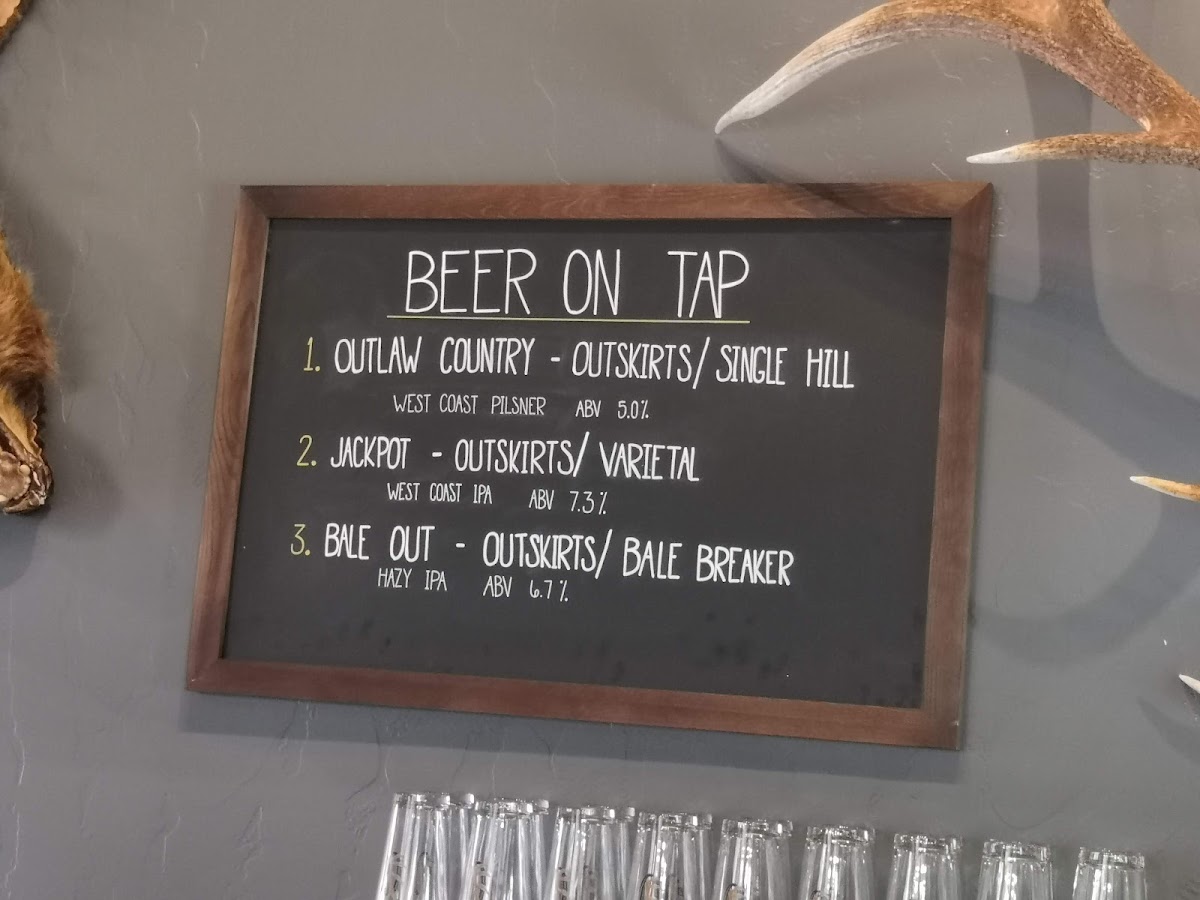 BEER ON TAP
1. OUTLAW COUNTRY - OUTSKIRTS/ SINGLE HILL
WEST COAST PILSNER ABV 5.0%
2. JACKPOT - OUTSKIRTS/ VARIETAL
WEST COAST IPA ABV 7.3%
3. BALE OUT - OUTSKIRTS/ BALE BREAKER
HAZY IPA ABV 6.7%